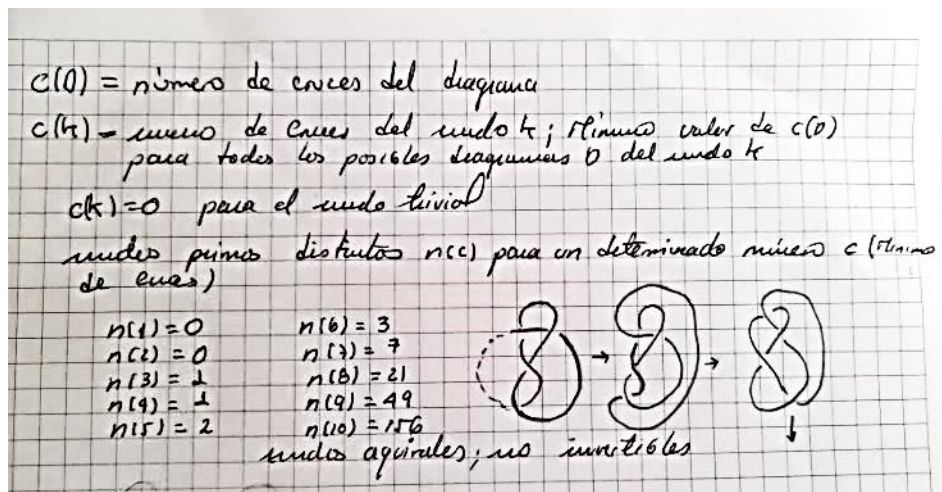 c(D) = número de cruces del diagrama
c(k) = numero de cruces del nudo k; Mínimo valor de c(D)
para todos los posibles diagramas D del nudo k
c(k)=0 para el nudo trivial
nudos primos distintos n(c) para un determinado número c (Mínimo
de cruces)
n(1)=0
n(2)=0
n(3)=1
n(4)=1
n(5)=2
n(6)=3
n(7)=7
n(8)=21
n(9)=49
n(10)=156
nudos aquirales; no invertibles